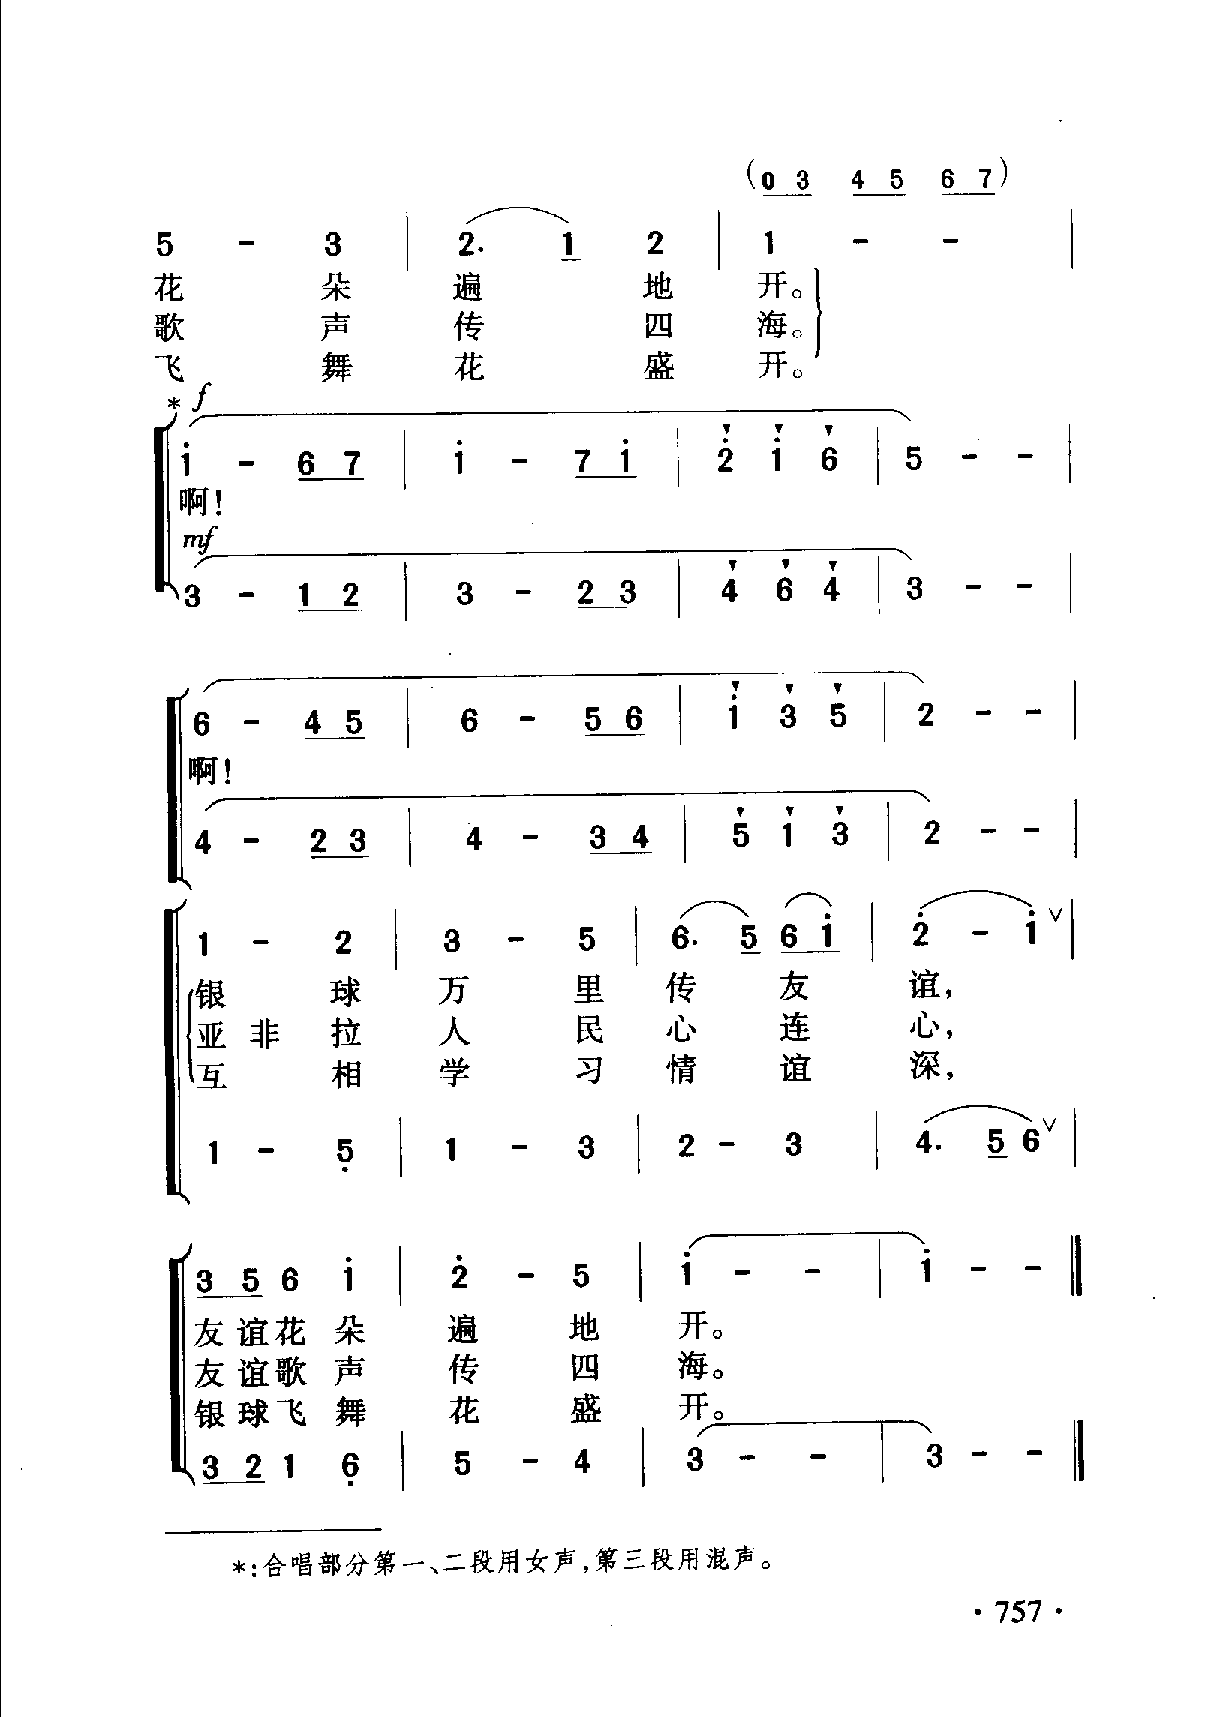 (0 3 4 5 6 7)
5 - 3 | 2. 1 2 | 1 - - |
花 朵 遍 地 开。
歌 声 传 四 海。
飞 舞 花 盛 开。
* f
i - 6 7 | i - 7 i | 2̇ i 6 | 5 - - |
啊!
mf
3 - 1 2 | 3 - 2 3 | 4 6 4 | 3 - - |
6 - 4 5 | 6 - 5 6 | i 3 5 | 2 - - |
啊!
4 - 2 3 | 4 - 3 4 | 5 1 3 | 2 - - |
1 - 2 | 3 - 5 | 6. 5 6 i | 2̇ - i ∨ |
银 球 万 里 传 友 谊,
亚 非 拉 人 民 心 连 心,
互 相 学 习 情 谊 深,
1 - 5̣ | 1 - 3 | 2 - 3 | 4. 5 6 ∨ |
3 5 6 i | 2̇ - 5 | i - - | i - - ‖
友 谊 花 朵 遍 地 开。
友 谊 歌 声 传 四 海。
银 球 飞 舞 花 盛 开。
3 2 1 6̣ | 5 - 4 | 3 - - | 3 - - ‖
*:合唱部分第一、二段用女声,第三段用混声。
· 757 ·